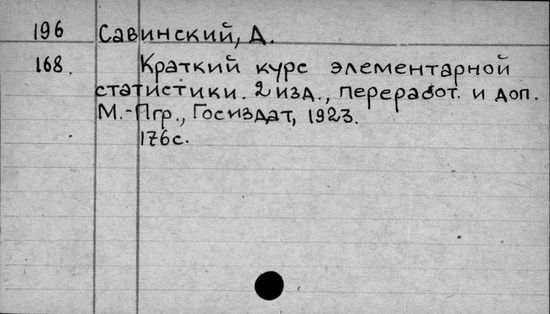 196 Савинский, Д.
168. Краткий курс элементарной
статистики. 2 изд., переработ. и доп.
М.-Пгр., Госиздат, 1923.
176с.